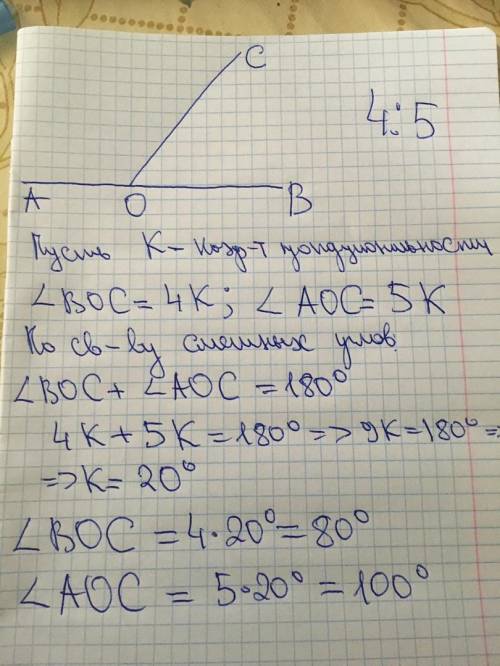 C
4:5
A O B
Пусть К – коэф-т
∠BOC = 4K; ∠AOC = 5K
По св-ву смежных углов
∠BOC + ∠AOC = 180°
4K + 5K = 180° => 9K = 180° =>
=> K = 20°
∠BOC = 4·20° = 80°
∠AOC = 5·20° = 100°